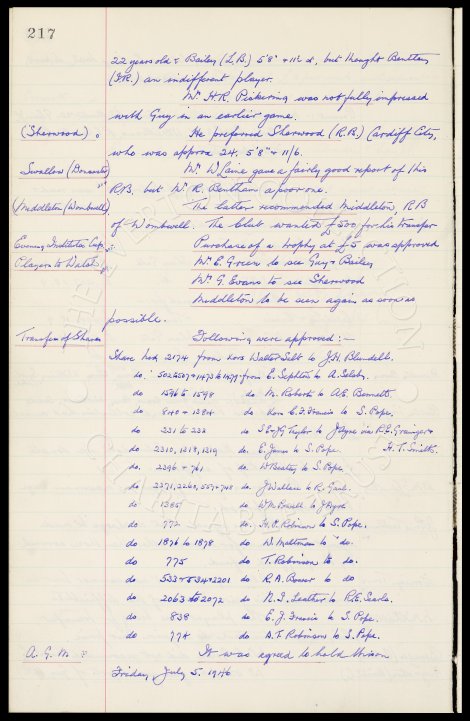 217
22 years old & Bailey (L.B.) 5'8" & 11½ d, but thought Bentham
(I.R.) an indifferent player.
Mr H.R. Pickering was not fully impressed
with Guy in an earlier game.
(Sherwood) He preferred Sherwood (R.B.) Cardiff City,
who was approx 24. 5'8" & 11/6.
Swallow (Doncaster) Mr W Laine gave a fairly good report of this
R/B. but Mr R. Bentham a poor one.
Middleton (Wombwell) The latter recommended Middleton, R/B
of Wombwell. The Club wanted £500 for his transfer
Evening Institutes Cup Purchase of a trophy at £5 was approved
Players to Watch Mr E. Green to see Guy & Bailey
Mr G. Evans to see Sherwood
Middleton to be seen again as soon as
possible.
Transfer of Shares Following were approved:—
Share No. 2174 from Exors Walter Salt to J.H. Blundell.
do. 502 & 507 & 1473 to 1479 from E. Sephton to A. Selsby.
do 1596 to 1598 do M. Roberts to A.E. Bennett.
do 840 & 1384 do Exors E.J. Francis to S. Pope.
do 231 to 233 do S E & J G Taylor to J Pryde via R.E. Grainger &
do 2310, 1318, 1319 do E. Jones to S. Pope. H.T. Smith.
do 2396 & 761 do W Beatty to S. Pope.
do 2271, 2260, 557 & 748 do J Wallace to R. Gaul.
do 1385 do W M Powell to J Pryde
do 772 do H.P. Robinson to S. Pope.
do 1876 to 1878 do W. Maltman to do.
do 775 do T. Robinson to do.
do 533 & 534 & 2201 do R.A. Bower to do
do 2063 to 2072 do N.I. Leather to R.E. Searle.
do 838 do E.J. Francis to S. Pope.
do 774 do A.T. Robinson to S. Pope.
A. G. M. It was agreed to hold this on
Friday, July 5, 1946